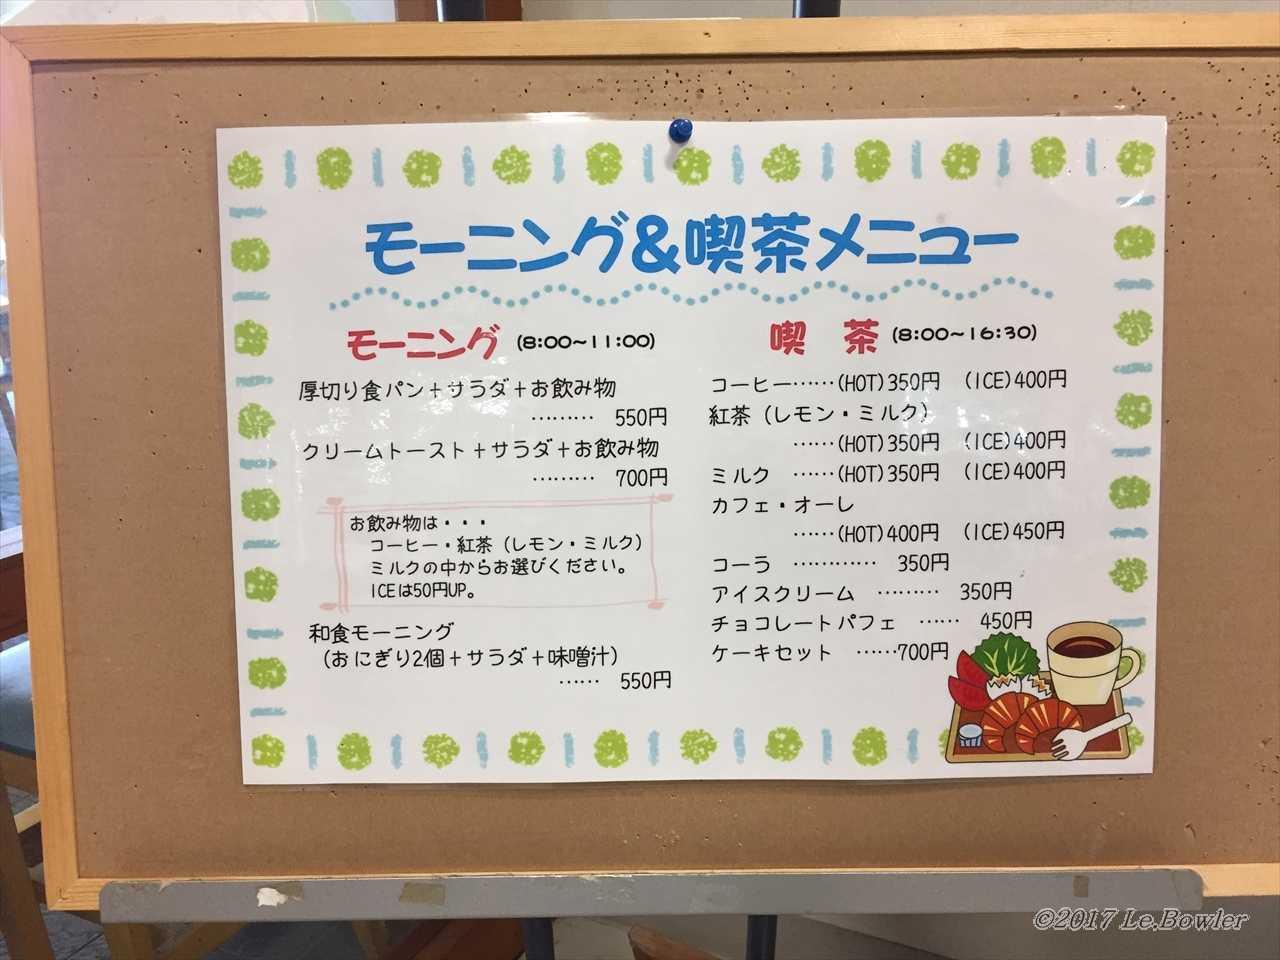 モーニング&喫茶メニュー
モーニング (8:00~11:00)
厚切り食パン+サラダ+お飲み物
……… 550円
クリームトースト+サラダ+お飲み物
……… 700円
お飲み物は・・・
コーヒー・紅茶(レモン・ミルク)
ミルクの中からお選びください。
ICEは50円UP。
和食モーニング
(おにぎり2個+サラダ+味噌汁)
…… 550円
喫茶 (8:00~16:30)
コーヒー……(HOT)350円 (ICE)400円
紅茶(レモン・ミルク)
……(HOT)350円 (ICE)400円
ミルク ……(HOT)350円 (ICE)400円
カフェ・オーレ
……(HOT)400円 (ICE)450円
コーラ ………… 350円
アイスクリーム ……… 350円
チョコレートパフェ …… 450円
ケーキセット ……700円
©2017 Le.Bowler